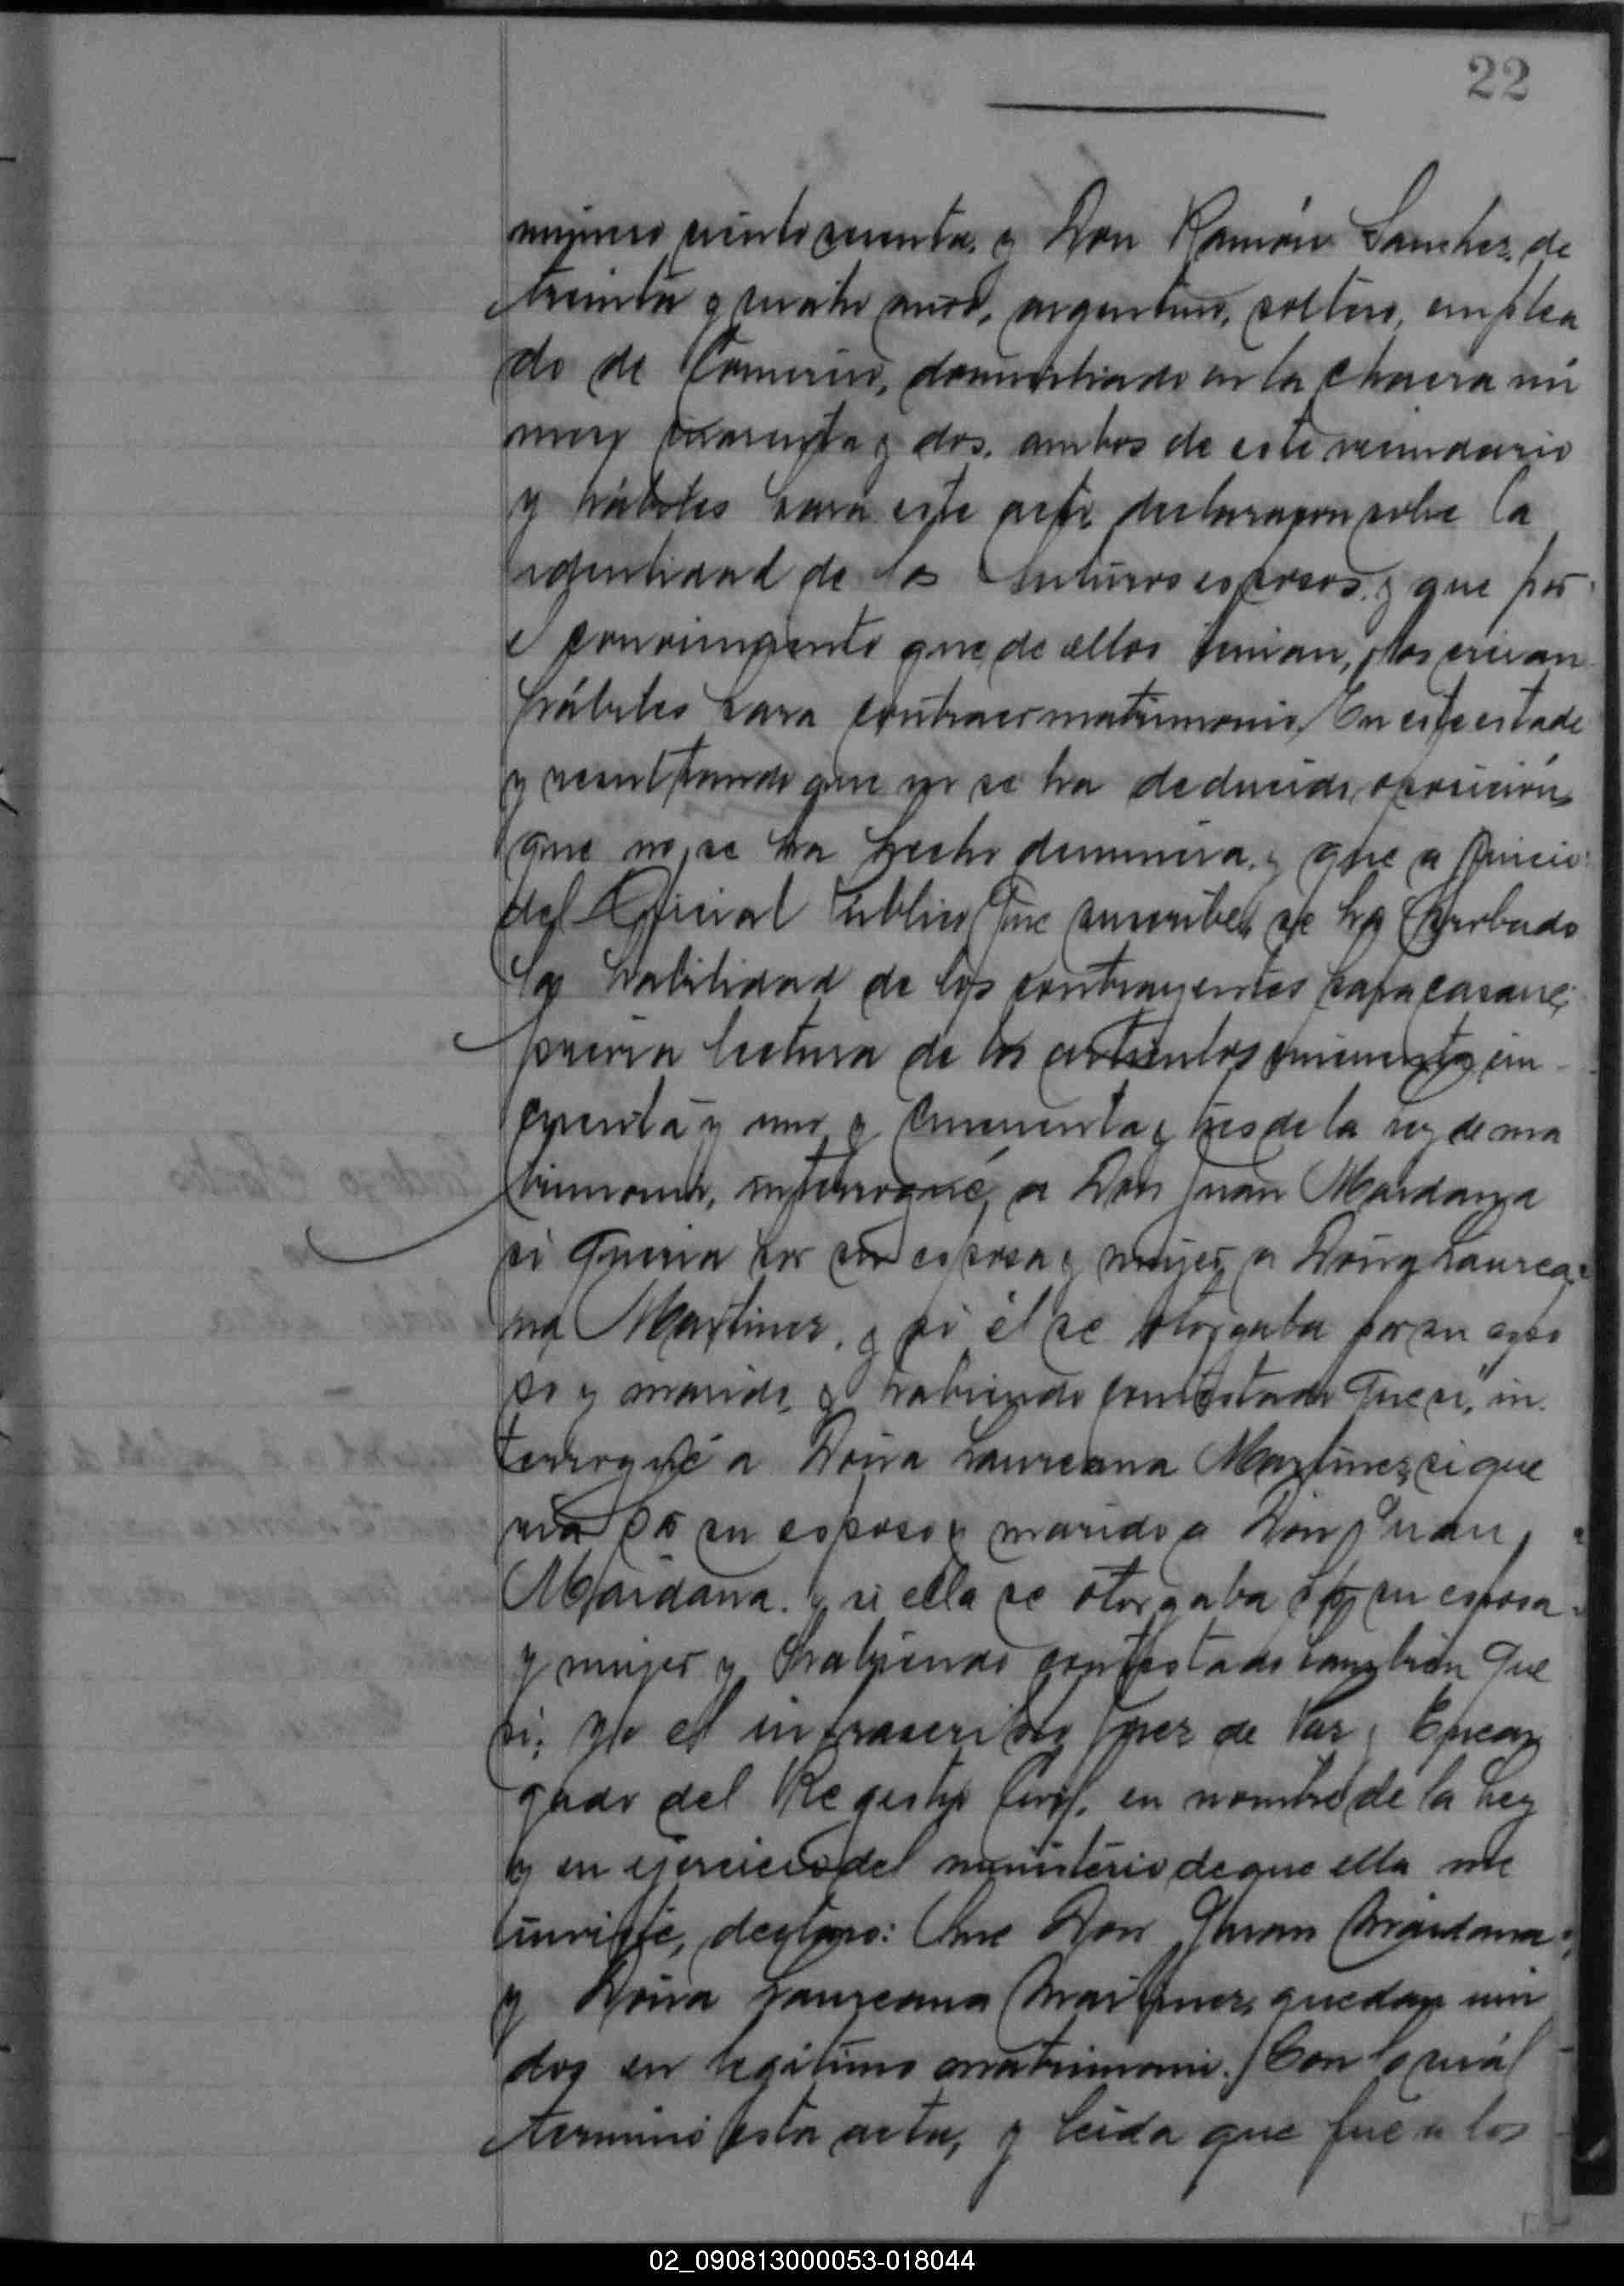 22
número ciento sesenta, y Don Ramón Sanchez, de
treinta y cuatro años, argentino, soltero, emplea
do de Comercio, domiciliado en la chacra nú
mero cuarenta y dos, ambos de este vecindario
y hábiles para este acto, declararon sobre la
identidad de los futuros esposos, y que por
el conocimiento que de ellos tenian, los creian
hábiles para contraer matrimonio. En este estado
y resultando que no se ha deducido oposición,
que no se ha hecho denuncia, y que a juicio
del Oficial Público que suscribe, se ha probado
la habilidad de los contrayentes para casarse;
previa lectura de los articulos cincuenta, cin
cuenta y uno y cincuenta y tres de la ley de ma
trimonio, interrogué, a Don Juan Mardana
si queria por su esposa y mujer, a Doña Laurea
na Martinez, y si él se otorgaba por su espo
so y marido, y habiendo contestado que si, in
terrogué a Doña Laureana Martinez, si que
ria por su esposo y marido a Don Juan
Mardana, y si ella se otorgaba por su esposa
y mujer y habiendo contestado tambien que
si; yo el infrascrito Juez de Paz y Encar
gado del Registro Civil, en nombre de la Ley
y en ejercicio del ministerio de que ella me
inviste, declaro: Que Don Juan Mardana
y Doña Laureana Martinez, quedan uni
dos en legitimo matrimonio. Con lo cuál
terminó esta acta, y leida que fué a los
02_090813000053-018044